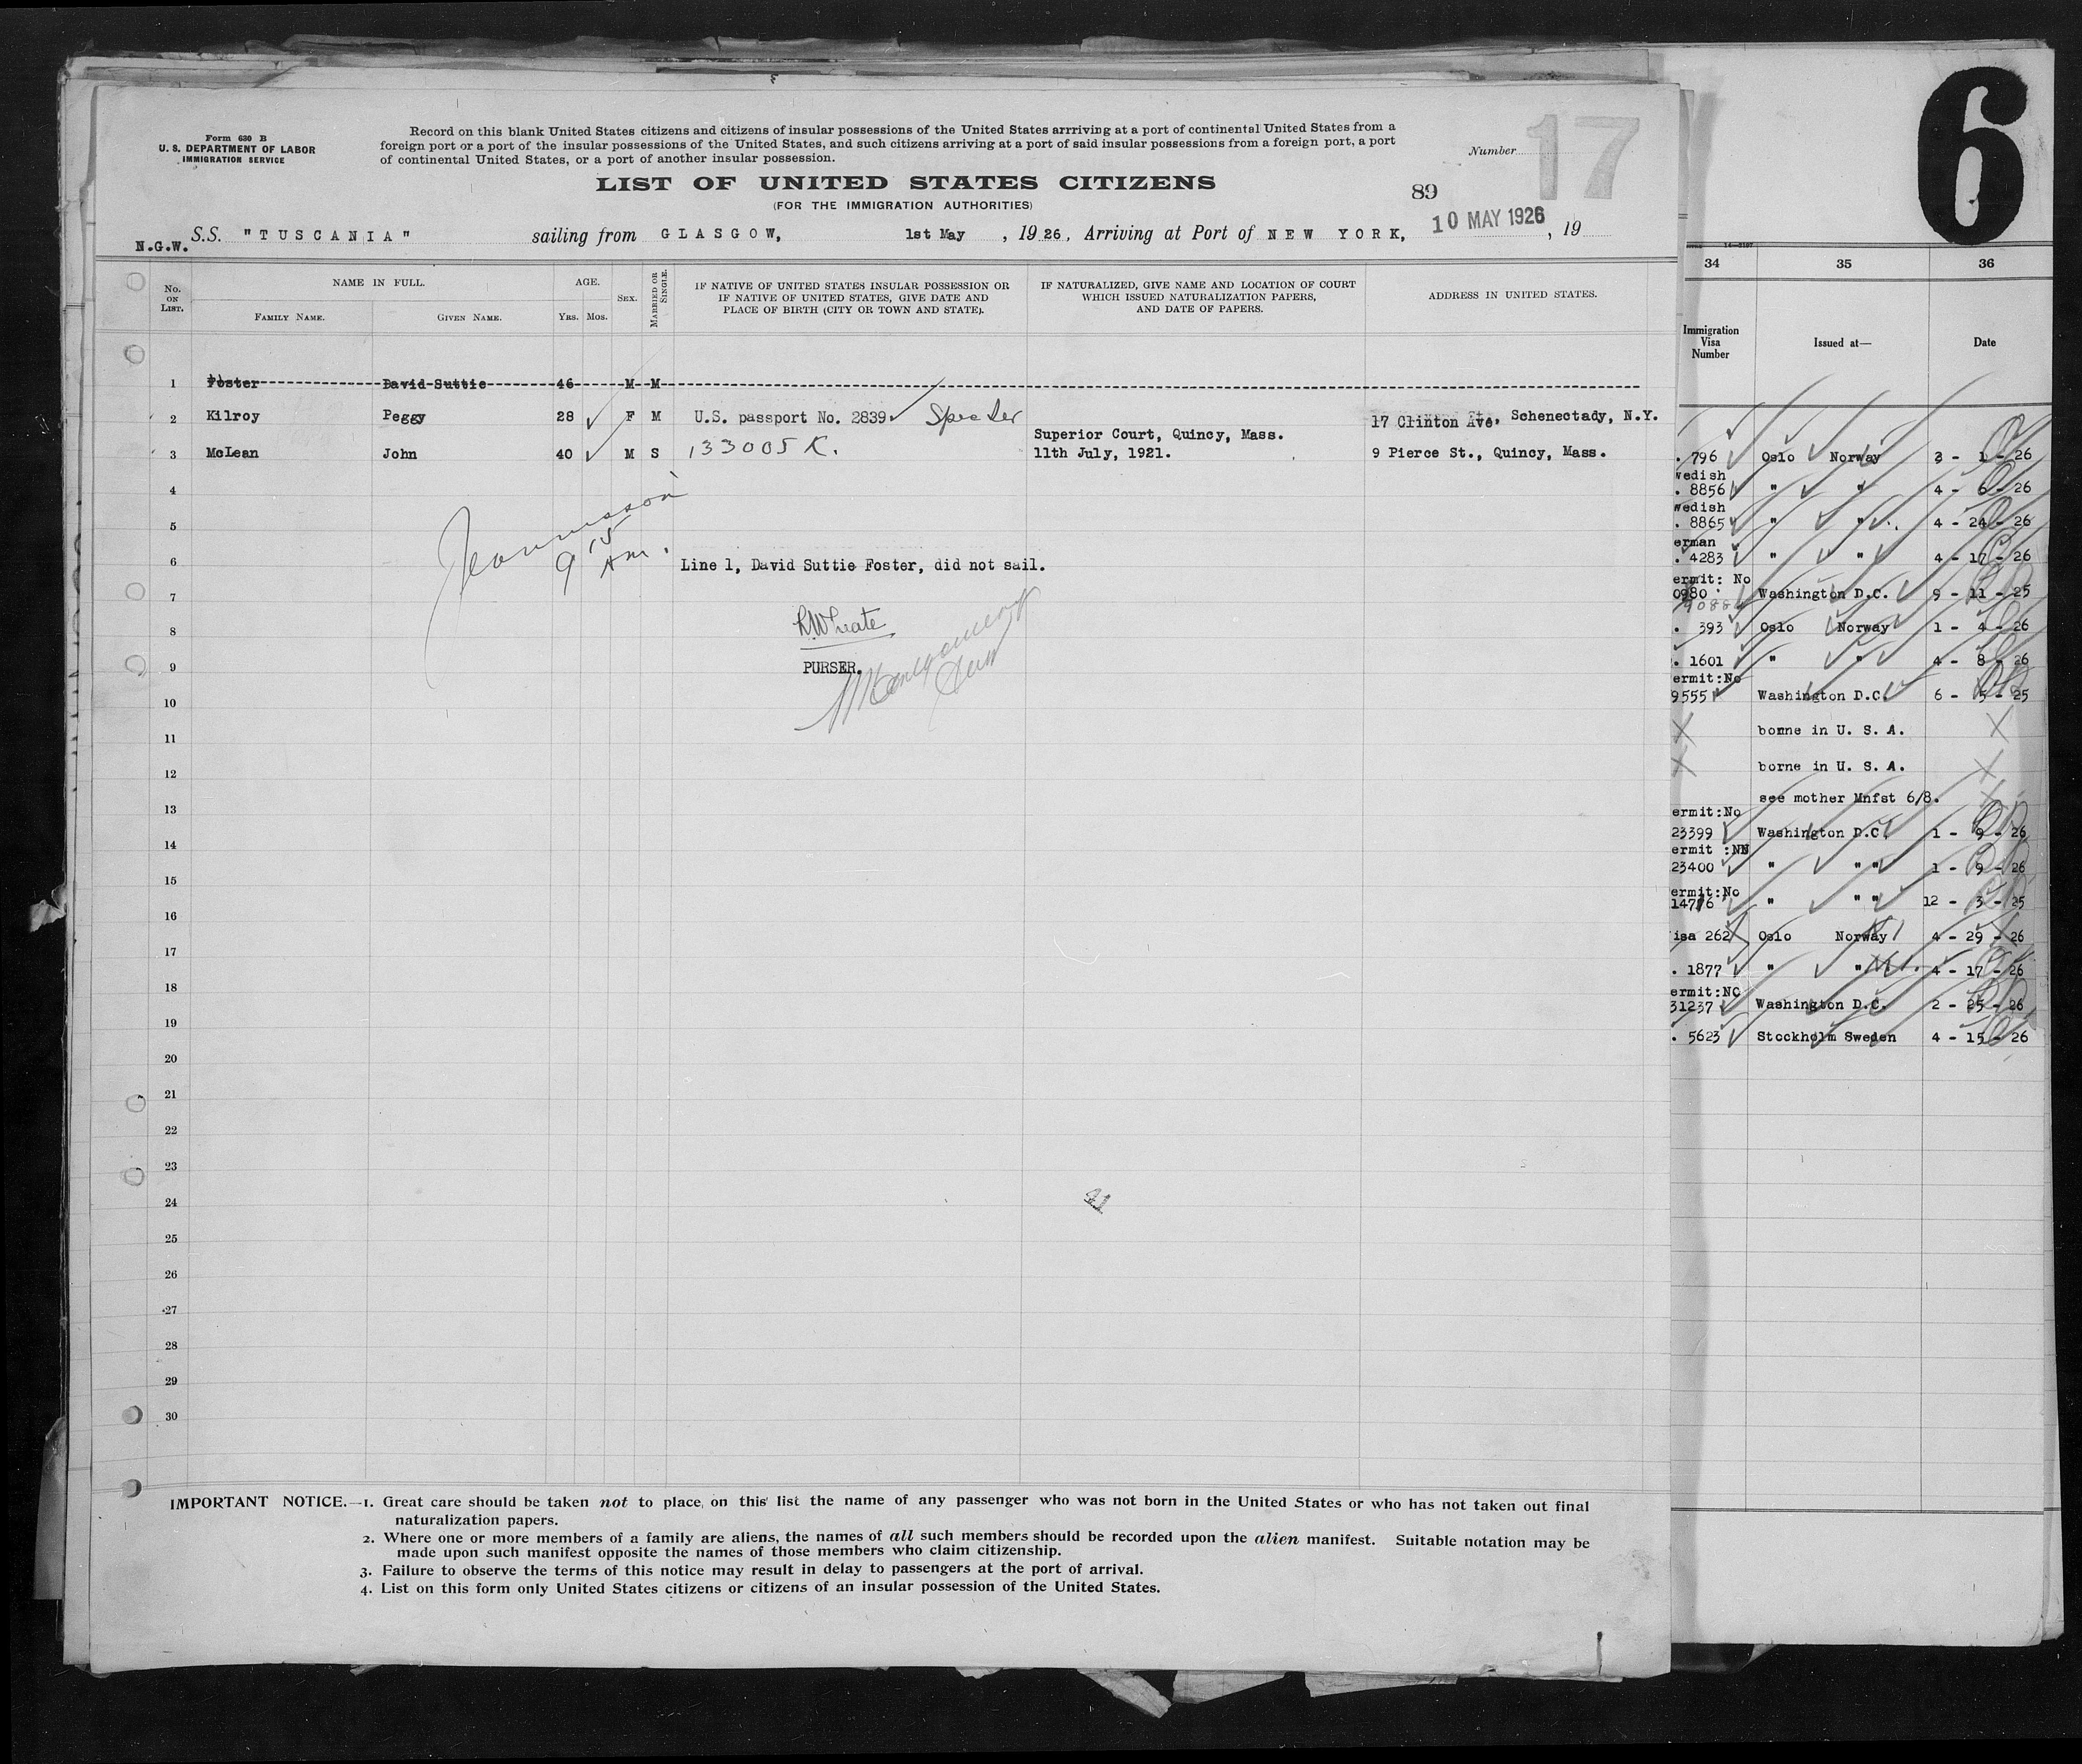 Form 630 B
U. S. DEPARTMENT OF LABOR
IMMIGRATION SERVICE
Record on this blank United States citizens and citizens of insular possessions of the United States arrriving at a port of continental United States from a
foreign port or a port of the insular possessions of the United States, and such citizens arriving at a port of said insular possessions from a foreign port, a port
of continental United States, or a port of another insular possession.
Number 17
LIST OF UNITED STATES CITIZENS
(FOR THE IMMIGRATION AUTHORITIES)
89
N.G.W. S.S. "TUSCANIA" sailing from GLASGOW, 1st May, 1926, Arriving at Port of NEW YORK, 10 MAY 1926, 19
No. ON LIST.
NAME IN FULL.
FAMILY NAME. GIVEN NAME.
AGE.
Yrs. Mos.
SEX.
MARRIED OR SINGLE.
IF NATIVE OF UNITED STATES INSULAR POSSESSION OR
IF NATIVE OF UNITED STATES, GIVE DATE AND
PLACE OF BIRTH (CITY OR TOWN AND STATE).
IF NATURALIZED, GIVE NAME AND LOCATION OF COURT
WHICH ISSUED NATURALIZATION PAPERS,
AND DATE OF PAPERS.
ADDRESS IN UNITED STATES.
1 Foster David Suttie 46 M M
2 Kilroy Peggy 28 F M U.S. passport No. 2839 17 Clinton Ave, Schenectady, N.Y.
Superior Court, Quincy, Mass.
3 McLean John 40 M S 133005 K. 11th July, 1921. 9 Pierce St., Quincy, Mass.
4
5
9 15 Am.
6 Line 1, David Suttie Foster, did not sail.
7
8
9 PURSER.
10
11
12
13
14
15
16
17
18
19
20
21
22
23
24
25
26
27
28
29
30
IMPORTANT NOTICE.—1. Great care should be taken not to place on this list the name of any passenger who was not born in the United States or who has not taken out final
naturalization papers.
2. Where one or more members of a family are aliens, the names of all such members should be recorded upon the alien manifest. Suitable notation may be
made upon such manifest opposite the names of those members who claim citizenship.
3. Failure to observe the terms of this notice may result in delay to passengers at the port of arrival.
4. List on this form only United States citizens or citizens of an insular possession of the United States.
6
34 35 36
Immigration
Visa
Number
Issued at—
Date
. 796 Oslo Norway 3 - 1 - 26
wedish
. 8856 " " 4 - 6 - 26
wedish
. 8865 " " 4 - 24 - 26
erman
. 4283 " " 4 - 17 - 26
ermit: No
0980 Washington D.C. 9 - 11 - 25
. 393 Oslo Norway 1 - 4 - 26
. 1601 " " 4 - 8 - 26
ermit:No
9555 Washington D.C. 6 - 5 - 25
X borne in U. S. A. X
X borne in U. S. A. X
see mother Mnfst 6/8.
ermit:No
23399 Washington D.C. 1 - 9 - 26
ermit :NN
23400 " " " 1 - 9 - 26
ermit:No
14776 " " " 12 - 3 - 25
isa 262 Oslo Norway 4 - 29 - 26
. 1877 " " 4 - 17 - 26
ermit:NO
31237 Washington D.C. 2 - 25 - 26
. 5623 Stockholm Sweden 4 - 15 - 26